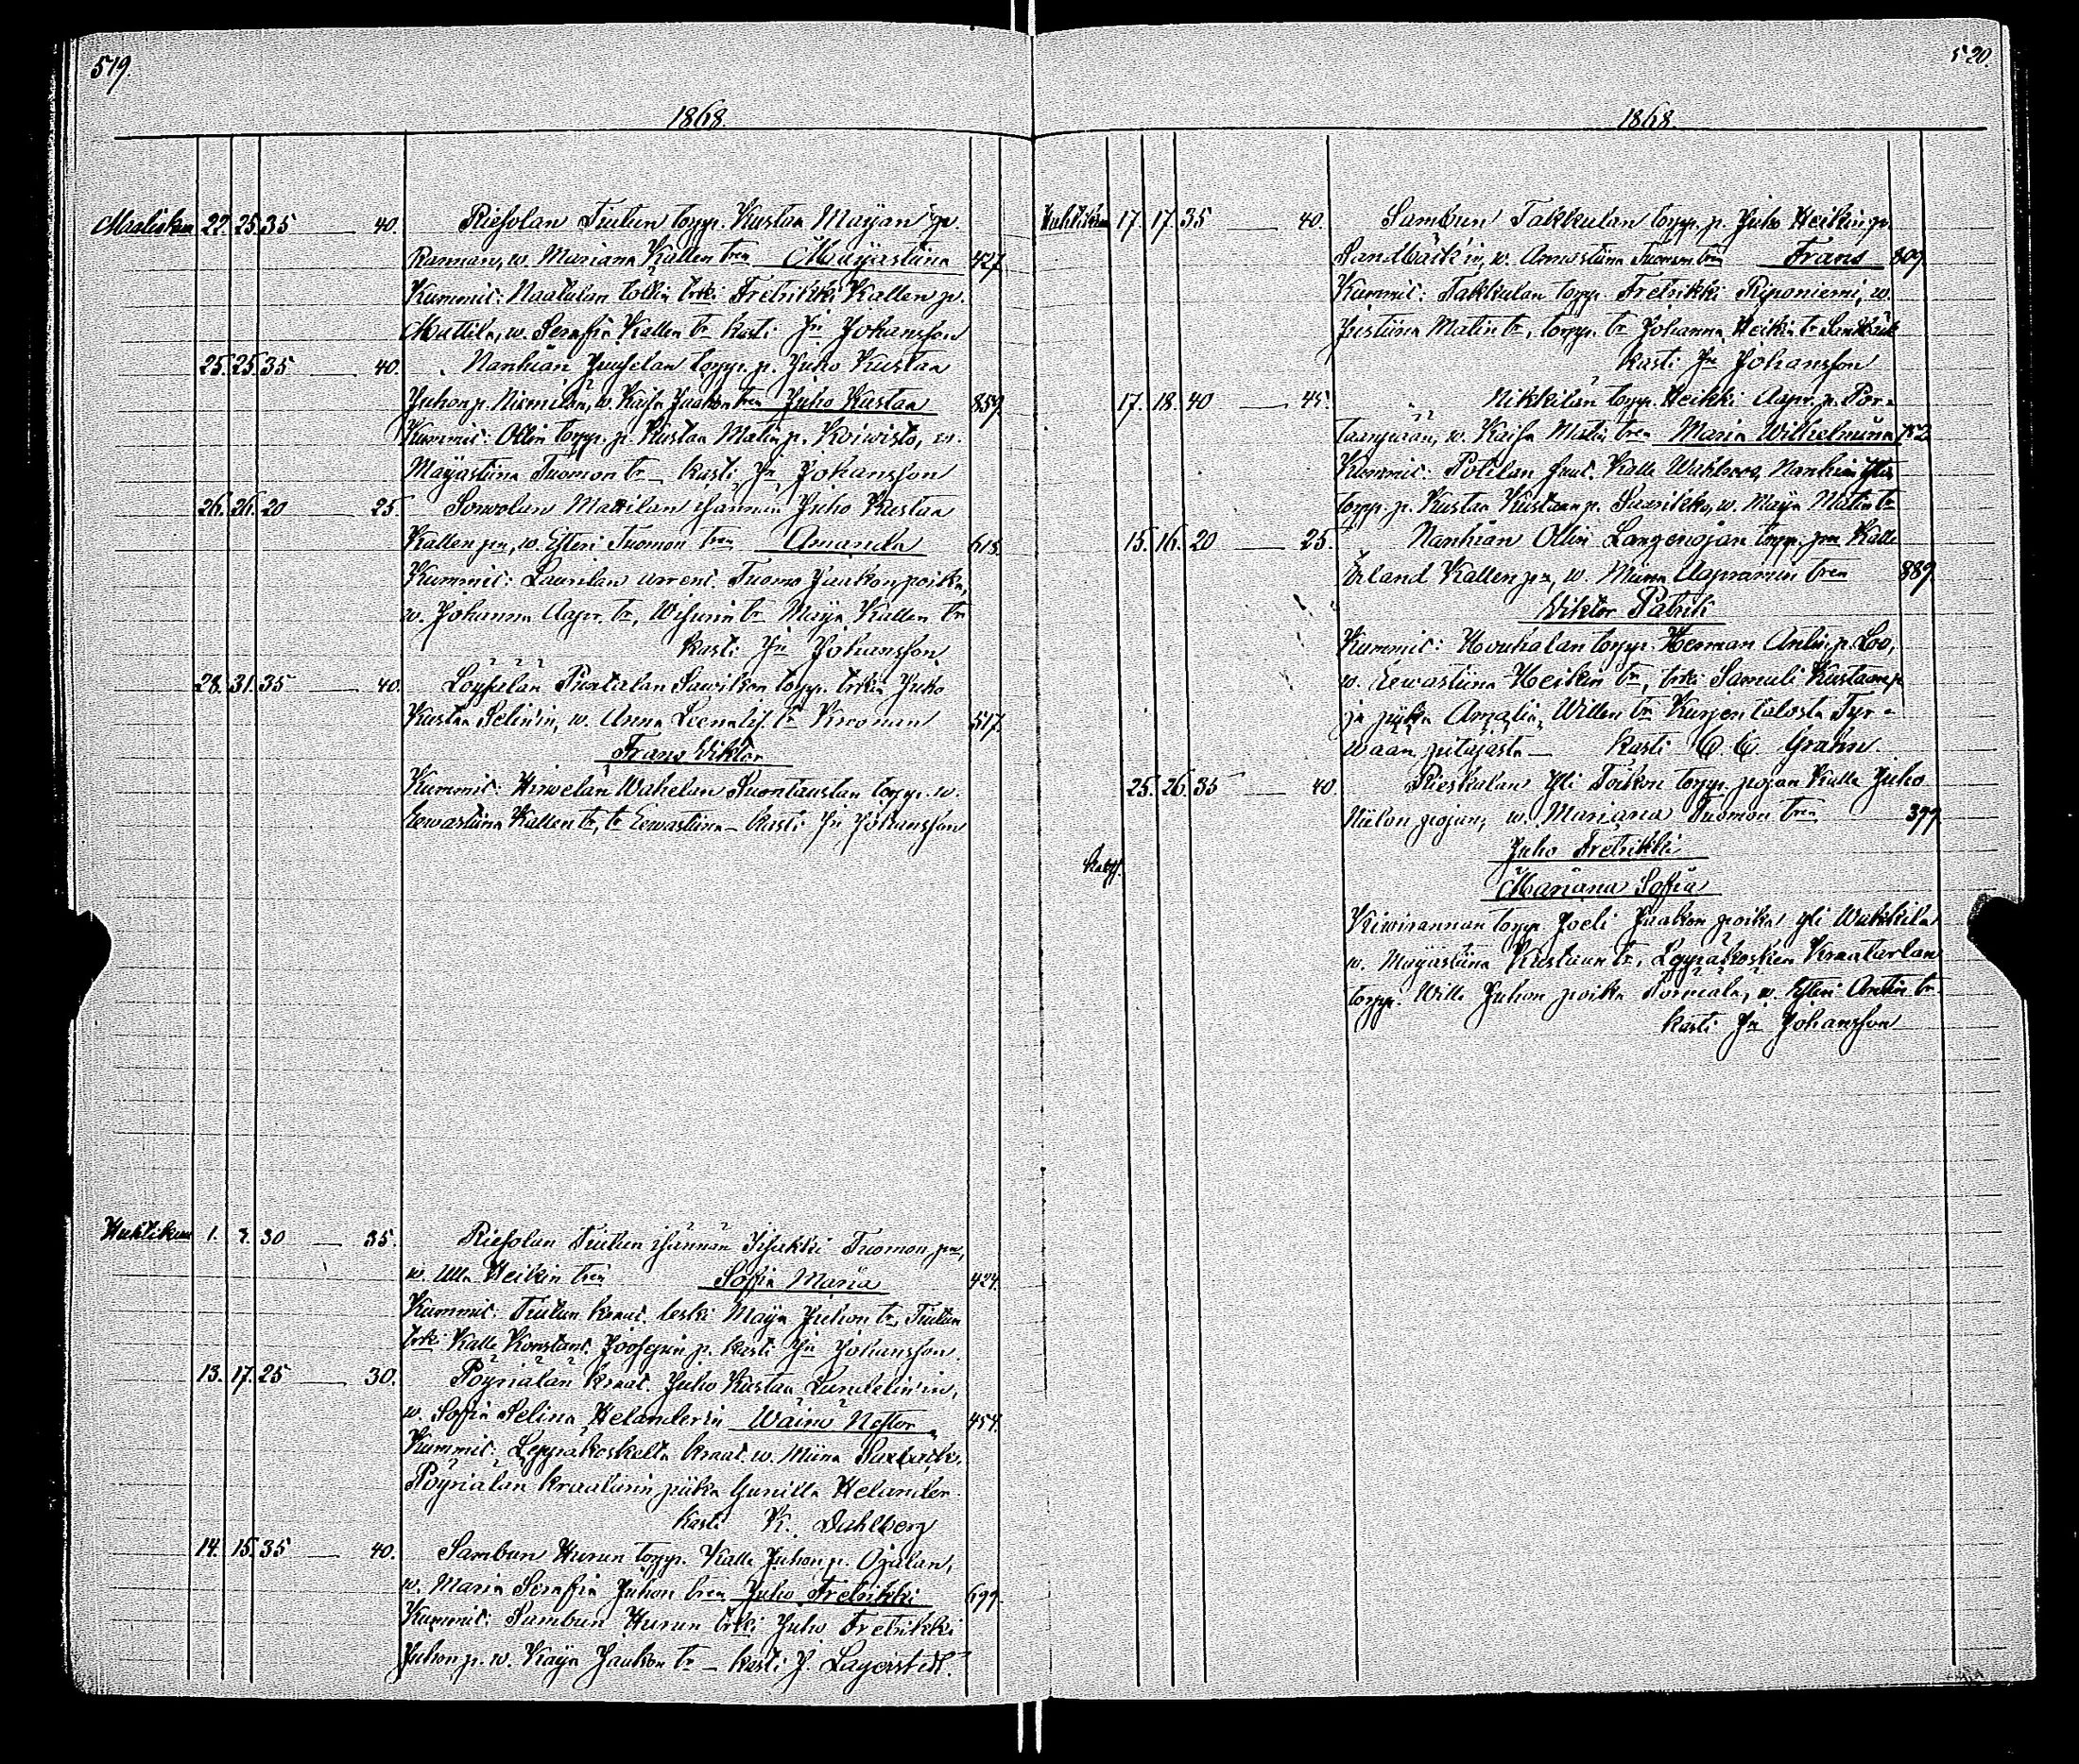 519.
1868.
Maalisku 22. 25. 35 — 40. Riesolan Tiutun torpp. Kustaa Maijan p.
Rannan, w. Mariana Kallen tren Maijastiina 427
Kummit: Naatulan tollin trki Fretrikki Kallen p.
Mattila, w. Serafia Kallen tr kasti Jn Johansson
25. 25. 35 — 40. Nanhian Juuselan torpp. p. Juho Kustaa
Juhon p. Niemilän, w. Kaisa Jaakon tren Juho Kustaa 859
Kummit: Ollin torpp. p. Kustaa Matin p. Koiwisto, w.
Maijastiina Tuomon tr — kasti Jn Johansson
26. 26. 20 — 25. Sowolan Mattilan isännän Juho Kustaa
Kallen pn, w. Esteri Tuomon tren Amanda 615
Kummit: Laurilan arrent. Tuomo Jaakon poika,
w. Johanna Aapr. tr, Wisurin tr Maija Kallen tr
kasti Jn Johansson
28. 31. 35 — 40. Puntalan Sawikon torpp. trkin Juho
Kustaa Selin'in, w. Anna Leenalis. tr Kreonan 517.
Frans Viktor
Kummit: Hirwelän Wahelan Suontaustan torpp. w.
Eewastiina Kallen tr, tr Eewastiina — kasti Jn Johansson
Huhtikuu 1. 3. 30 — 35. Riesolan Tiutun isännän Isakki Tuomon pn,
w. Ulla Heikin tren Sofia Maria 424.
Kummit: Tiutun kraat. leski Maija Juhon tr, Tiutun
trki Kalle Konstant. Joosepin p. kasti Jn Johansson.
13. 17. 25 — 30. Pöyriälän kraat. Juho Kustaa Lundelin'in,
w. Sofia Selina Helanderin Wäinö Nestor 454.
Kummit: Leppäkoskelta kraat. w. Miina
Pöyriälän kraatarin piika Gunilla Helander.
kasti K. Dahlberg
14. 15. 35 — 40. Sambun Hurun torpp. Kalle Juhon p. Ojalan,
w. Maria Serafia Juhon tren Juho Fretrikki 699.
Kummit: Sambun Hurun trki Juho Fretrikki
Juhon p. w. Kaija Jaakon tr — kasti J. Lagerstedt.
520.
1868.
Huhtikuu 17. 17. 35 — 40. Sambun Takkulan torpp. p. Juho Heikin p.
Sandbäck'in, w. Annastiina Tuomon tren Frans 809
Kummit: Takkulan torpp. Fretrikki Riponiemi, w.
Justiina Matin tr, torpp. tr Johanna Heikin tr Sandbäck
kasti Jn Johansson
17. 18. 40 — 45. Nikkilän torpp. Heikki Aapr. p. Por-
taanpään, w. Kaisa Matin tren Maria Wilhelmiina 752
Kummit: Potilan Kalle Wahlroos, Nanhian
torpp. p. Kustaa Kustaan p. Saarikko, w. Maija Matin tr
15. 16. 20 — 25. Nanhian Ollin Langenojan torpp. pn Kalle
Erland Kallen pn, w. Miina Aapramin tren 889
Viktor Patrik
Kummit: Houhalan torpp. Herman Antin p. Loo,
w. Eewastiina Heikin tr, trki Samuli Kustaan p.
ja piika Amalia Willen tr Kurjen talosta Tyr-
waan pitäjästä — kasti C. C. Grahn.
25. 26. 35 — 40. Rieskalan Yli Töikön torpp. pojan Kalle Juho
Niilon pojan, w. Mariana Tuomon tren 399.
Kaks.
Juho Fretrikki
Mariana Sofia
Kiwirannan torpp. Joeli Jaakon poika Yli Wahkila
w. Maijastiina Kustaan tr, Leppäkosken Kraatarlan
torpp. Wille Juhon poika Törmälä, w. Esteri Antin tr.
kasti Jn Johansson